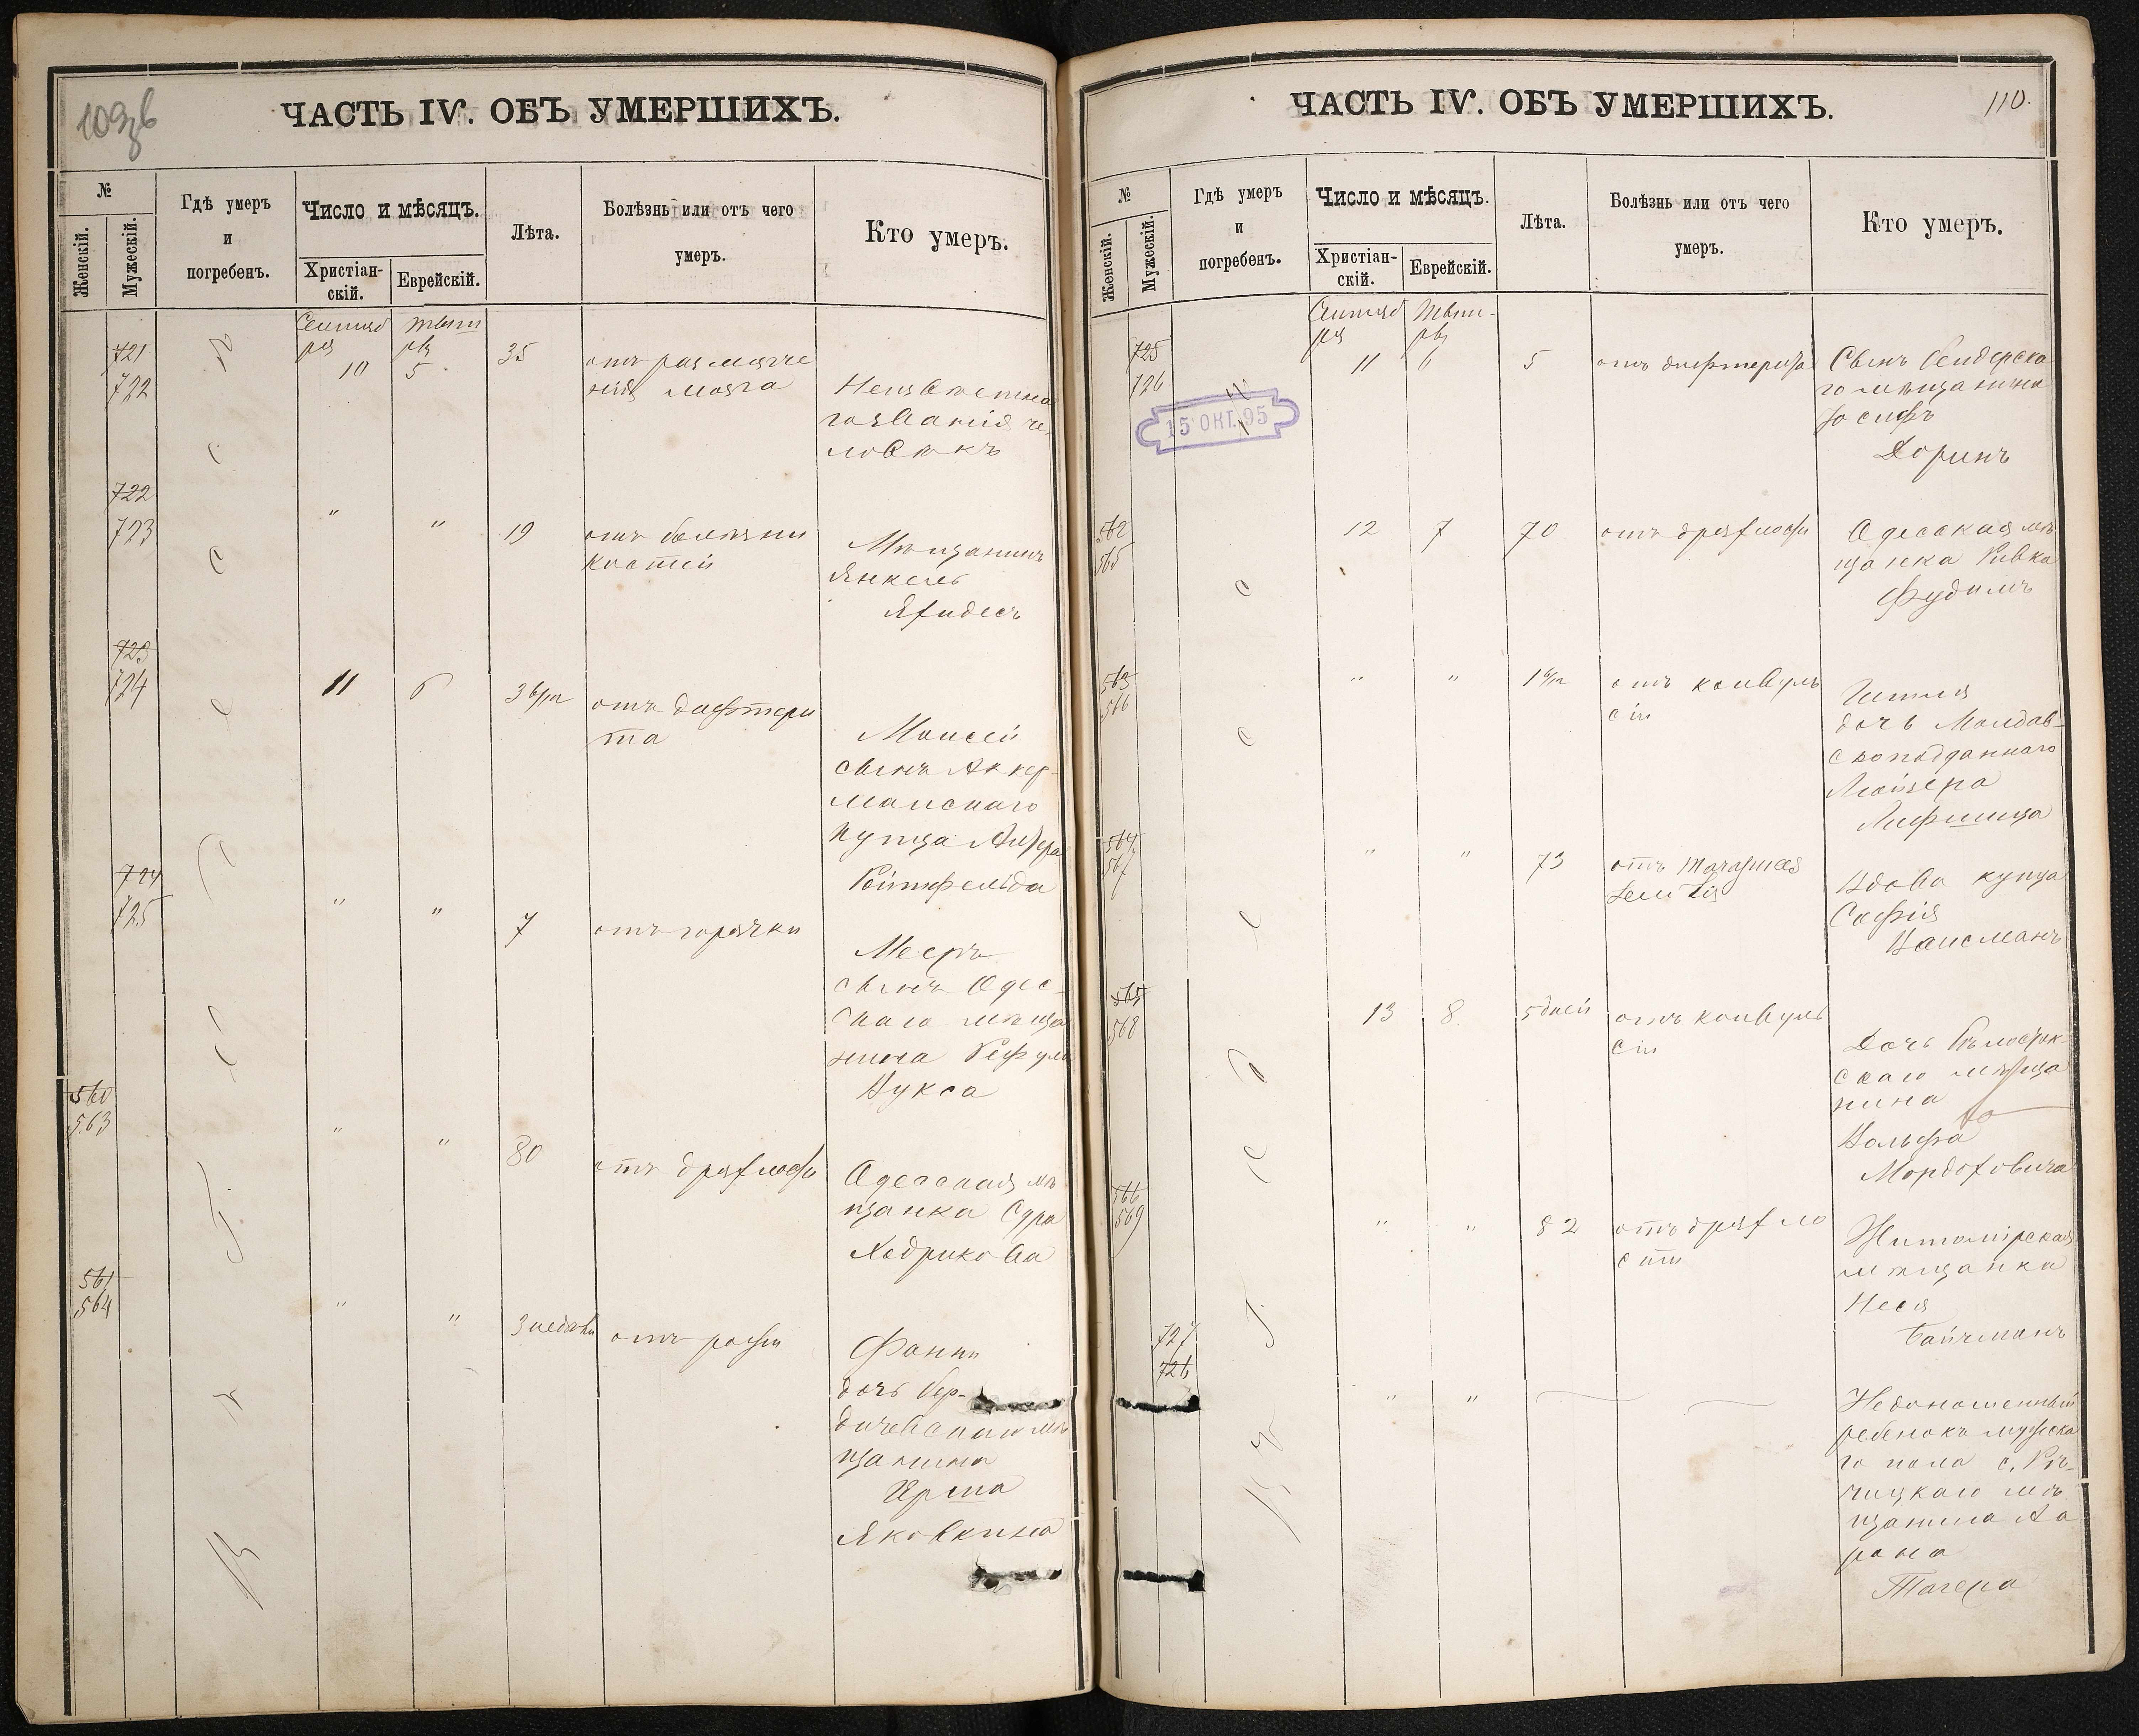 109об
ЧАСТЬ IV. ОБЪ УМЕРШИХЪ.
№
Женскій.
Мужескій.
Гдѣ умеръ
и
погребенъ.
Число и мѣсяцъ.
Христіан-
скій.
Еврейскій.
Лѣта.
Болѣзнь или отъ чего
умеръ.
Кто умеръ.
Сентяб
ря
10
5
721
722
35
отъ размягче
нія мозга
Неизвѣстна
го званія че
ловѣкъ
722
723
"
"
19
отъ болѣзни
костей
Мѣщанинъ
Янкель
723
724
11
6
3 6/12
отъ дифтери
та
Моисей
сынъ Аккер-
манскаго
купца
Ройтфельда
724
725
"
"
7
отъ горячки
Мееръ
сынъ Одес-
скаго мѣща
нина
Цукса
560
563
"
"
80
отъ дряхлости
Одесская мѣ
щанка Сура
561
564
"
"
3 недѣли
отъ рожи
Фанни
дочь Бер-
дичевскаго мѣ
щанина
Ерша
Яковкина
ЧАСТЬ IV. ОБЪ УМЕРШИХЪ.
110.
№
Женскій.
Мужескій.
Гдѣ умеръ
и
погребенъ.
Число и мѣсяцъ.
Христіан-
скій.
Еврейскій.
Лѣта.
Болѣзнь или отъ чего
умеръ.
Кто умеръ.
Сентяб
ря
725
726
11
6
5
отъ дифтерита
Сынъ Бендерска
го мѣщанина
Іосифъ
Доринъ
15 ОКТ. 95
562
565
12
7
70
отъ дряхлости
Одесская мѣ
щанка Ривка
Фудимъ
563
566
"
"
1 6/12
отъ конвуль
сіи
дочь Молдав-
скоподданнаго
Лейзера
Лифшица
564
567
"
"
73
отъ
Вдова купца
Софія
Вайсманъ
565
568
13
8
5 дней
отъ конвуль
сіи
Дочь Бѣлосток-
скаго мѣща
нина
Вольфа
Мордоховича
566
569
"
"
82
отъ дряхло
сти
Житомірская
мѣщанка
Неся
Байчманъ
727
726
"
"
Недоношенный
ребенокъ мужска
го пола с. Рѣ-
чицкаго мѣ
щанина Аа
рона
Тагера